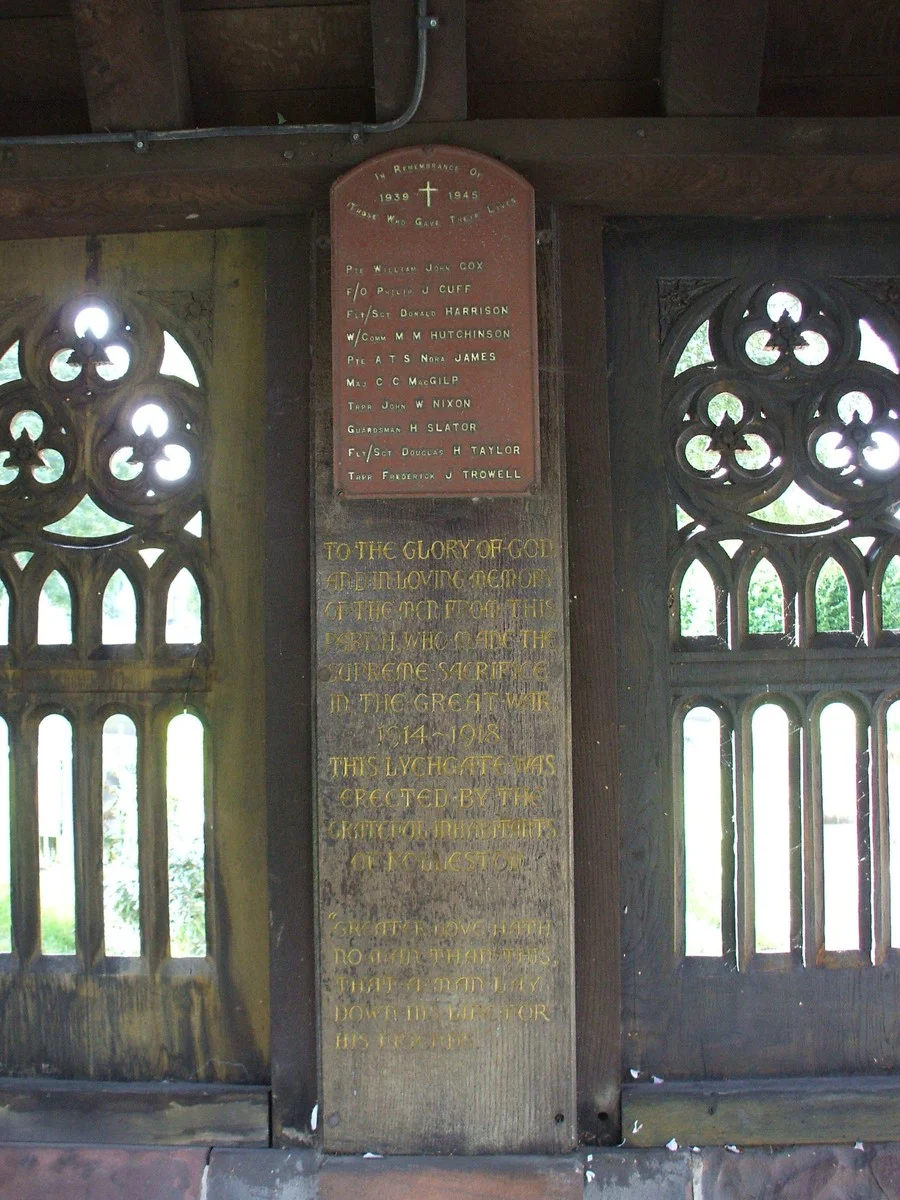 IN REMEMBRANCE OF
1939 1945
THOSE WHO GAVE THEIR LIVES
PTE WILLIAM JOHN COX
F/O PHILIP J CUFF
FLT/SGT DONALD HARRISON
W/COMM M M HUTCHINSON
PTE A T S NORA JAMES
MAJ C C MACGILP
TRPR JOHN W NIXON
GUARDSMAN H SLATOR
FLT/SGT DOUGLAS H TAYLOR
TRPR FREDERICK J TROWELL
TO THE GLORY OF GOD
AND IN LOVING MEMORY
OF THE MEN FROM THIS
PARISH WHO MADE THE
SUPREME SACRIFICE
IN THE GREAT WAR
1914~1918
THIS LYCHGATE WAS
ERECTED BY THE
GRATEFUL INHABITANTS
OF ROLLESTON
"GREATER LOVE HATH
NO MAN THAN THIS,
THAT A MAN LAY
DOWN HIS LIFE FOR
HIS FRIENDS